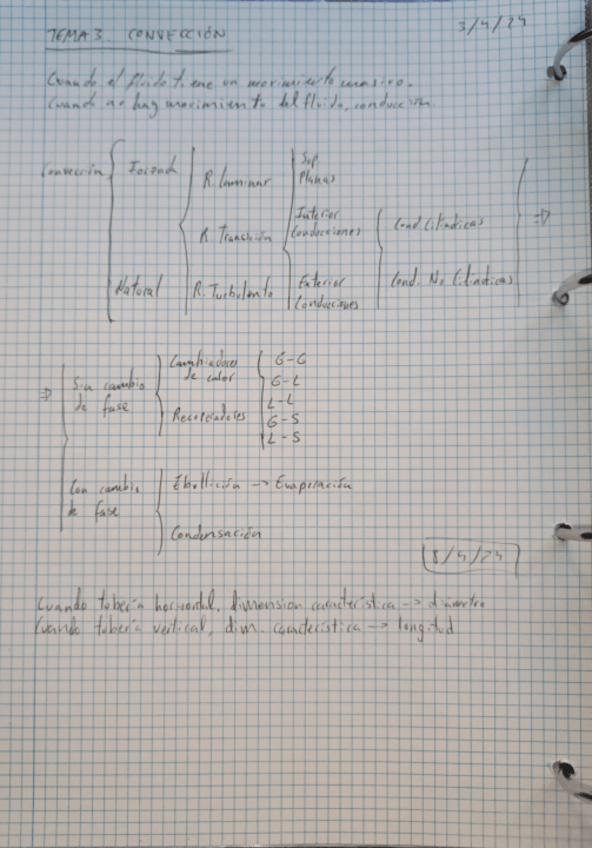 TEMA 3. CONVECCIÓN
3/4/24
Cuando el fluido tiene un movimiento masivo.
Cuando no hay movimiento del fluido, conducción.
Convección
Forzada
Natural
R. Laminar
R. Transición
R. Turbulento
Sup
Planas
Interior
Conducciones
Exterior
Conducciones
Cond. Cilíndricas
Cond. No Cilíndricas
⇒
⇒
Sin cambio
de fase
Cambiadores
de calor
Recuperadores
G-G
G-L
L-L
G-S
L-S
Con cambio
de fase
Ebullición → Evaporación
Condensación
8/4/24
Cuando tubería horizontal, dimension característica → diámetro
Cuando tubería vertical, dim. característica → longitud